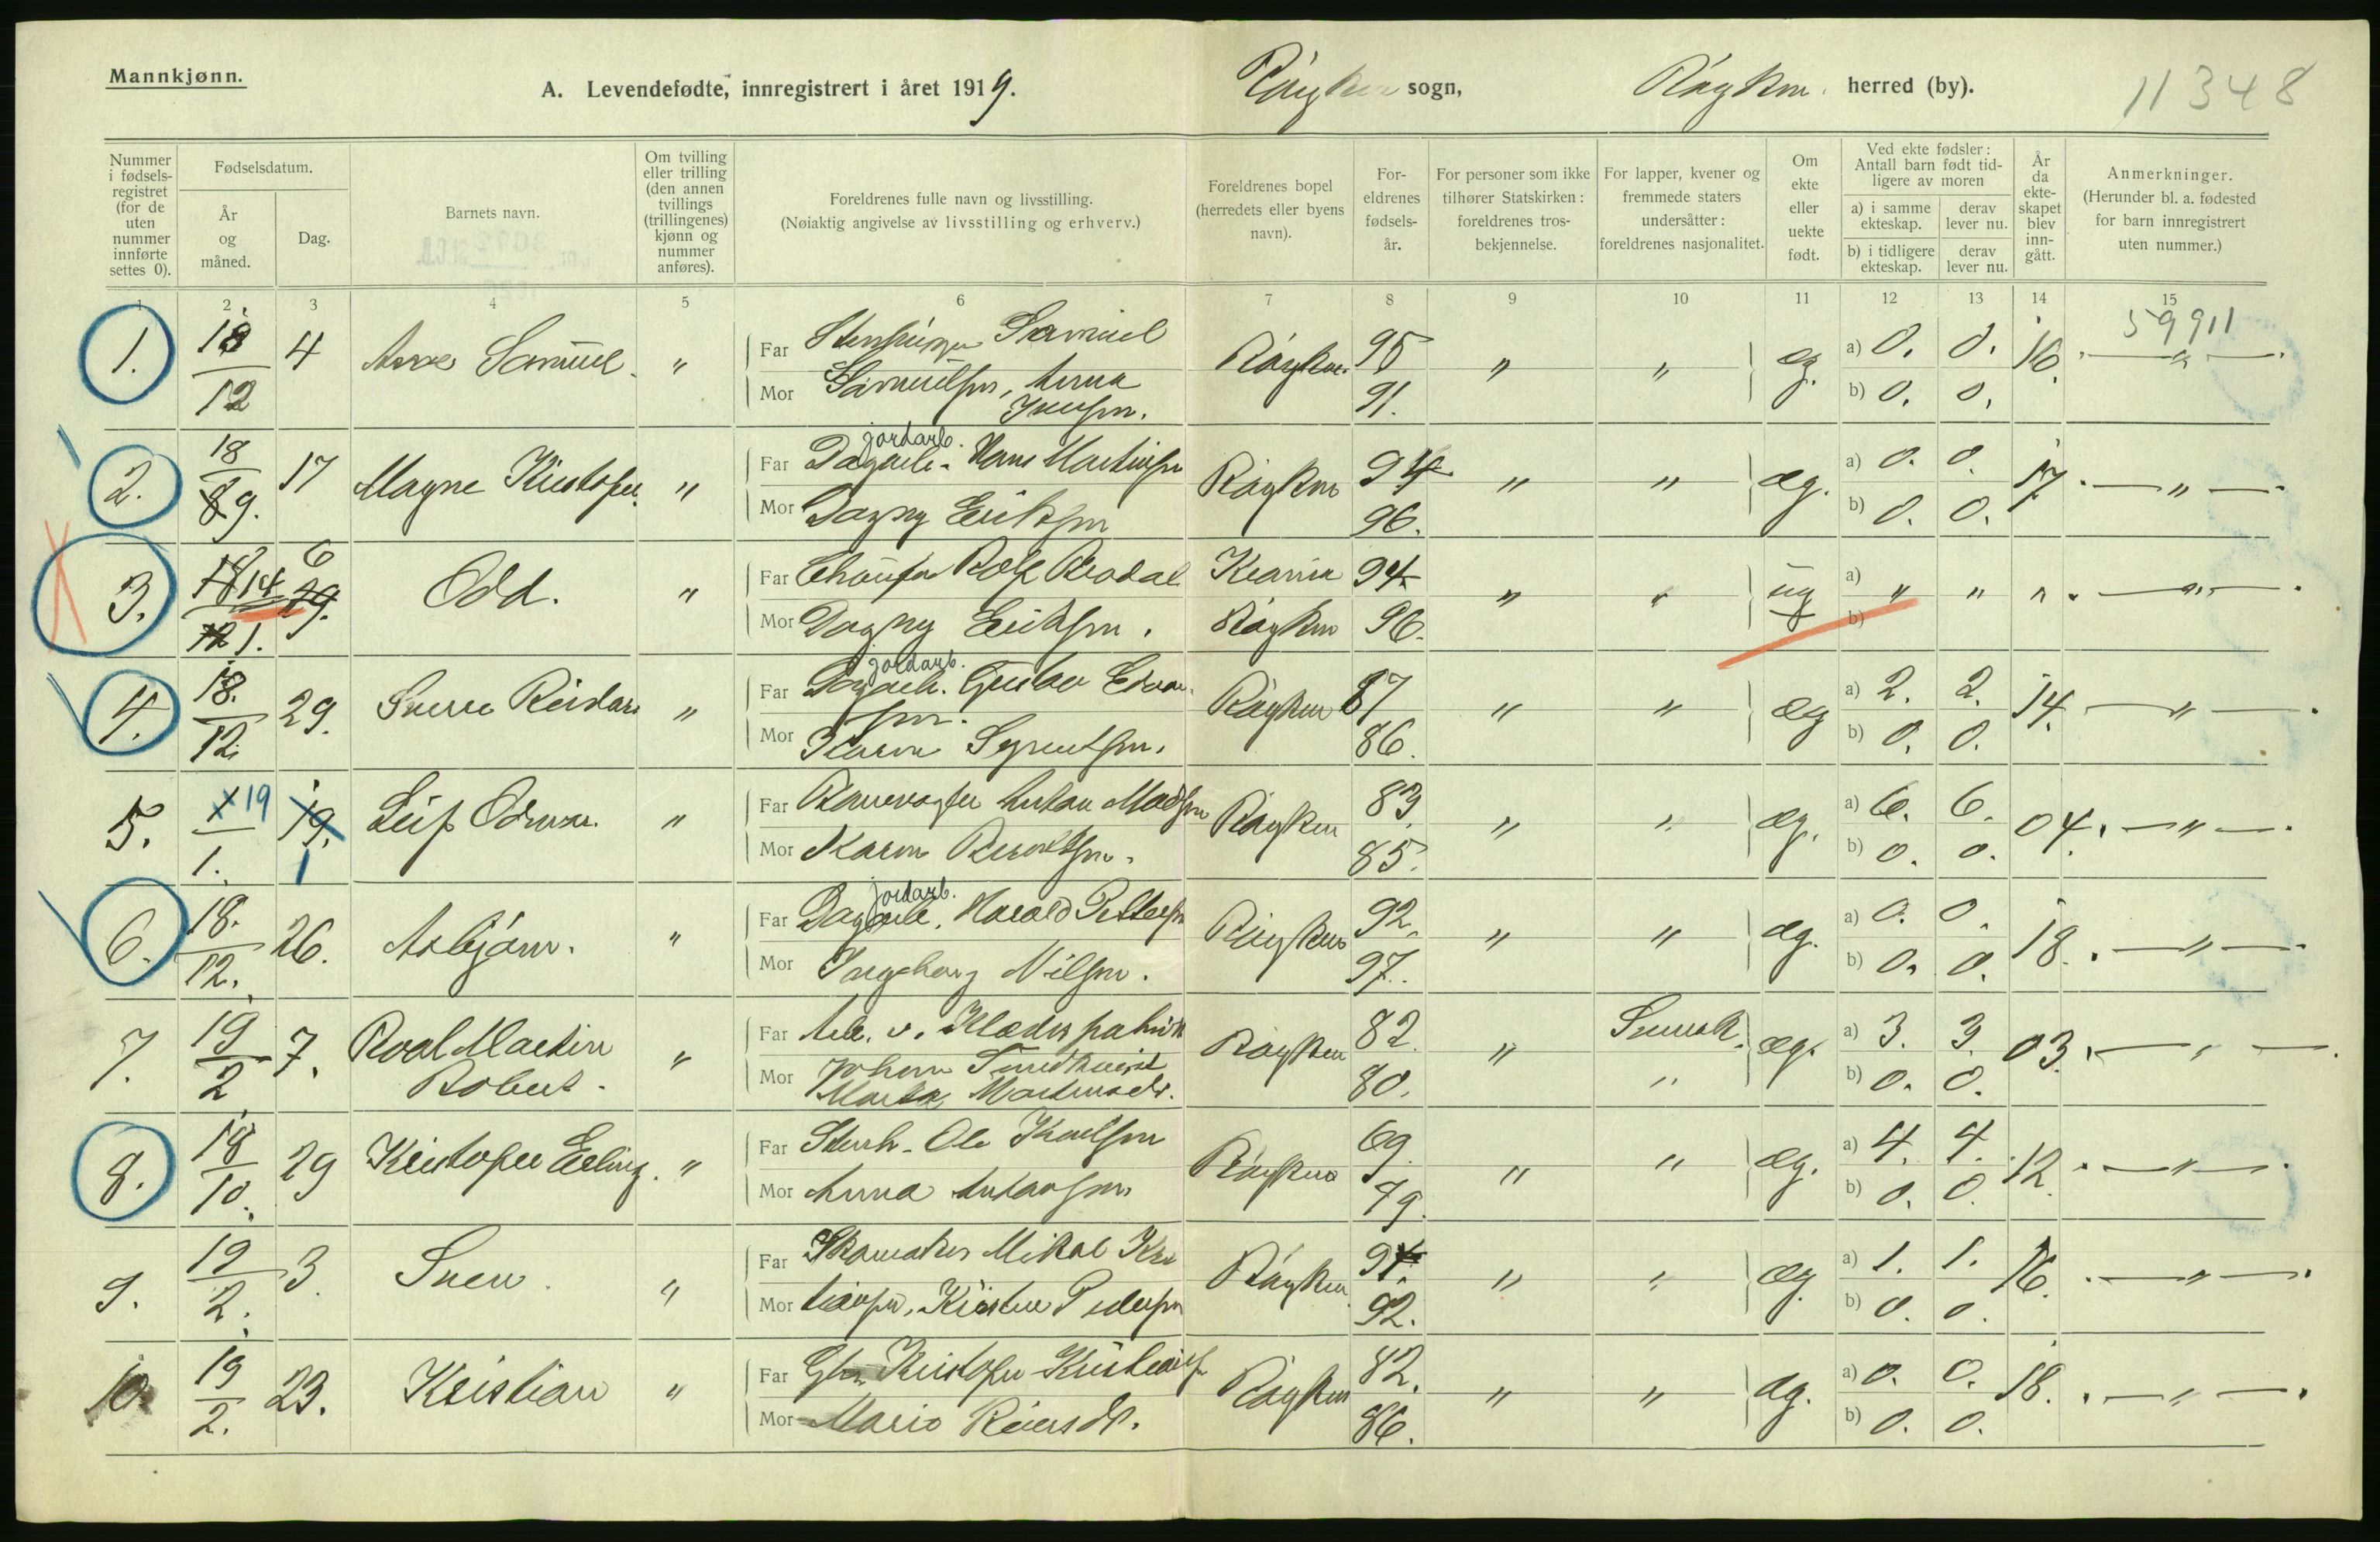 Mannkjønn.
A. Levendefødte, innregistrert i året 1919. Røyken sogn, Røyken herred (by). 11348
Nummer i fødselsregistret (for de uten nummer innførte settes 0).
Fødselsdatum.
År og måned.
Dag.
Barnets navn.
Om tvilling eller trilling (den annen tvillings (trillingenes) kjønn og nummer anføres).
Foreldrenes fulle navn og livsstilling.
(Nøiaktig angivelse av livsstilling og erhverv.)
Foreldrenes bopel (herredets eller byens navn).
Foreldrenes fødselsår.
For personer som ikke tilhører Statskirken: foreldrenes trosbekjennelse.
For lapper, kvener og fremmede staters undersåtter: foreldrenes nasjonalitet.
Om ekte eller uekte født.
Ved ekte fødsler: Antall barn født tidligere av moren
a) i samme ekteskap. derav lever nu.
b) i tidligere ekteskap. derav lever nu.
År da ekteskapet blev inngått.
Anmerkninger.
(Herunder bl. a. fødested for barn innregistrert uten nummer.)
1 2 3 4 5 6 7 8 9 10 11 12 13 14 15
59911
1. 18/12 4 Arne Samuel. " Far Stenhugger Samuel Røyken 95 " " æg. a) 0. 0. 16. — " —
Mor Samuelsen, Anna Iversen. 91. b) 0. 0.
2. 18/9. 17 Magne Kristofer. " Far Dagarb. jordarb. Hans Martinsen Røyken 94 " " æg. a) 0. 0. 17. — " —
Mor Dagny Eriksen 96. b) 0. 0.
3. 18 14/12 1. 29. 6 Odd. " Far Chaufør Rolf Brodal Krania 94 " " ug a) " " " — " —
Mor Dagny Eriksen. Røyken 96. b)
4. 18./12. 29. Sverre Reidar " Far Dagarb. jordarb. Gustav Edvardsen. Røyken 87 " " æg a) 2. 2. 14. — " —
Mor Karen Syvertsen. 86. b) 0. 0.
5. 1 19/1. 19. 1 Leif Odmar. " Far Banevogter Anton Madsen Røyken 83. " " æg. a) 6. 6. 04. — " —
Mor Karen Berntsen. 85. b) 0. 0.
6. 18./12. 26. Asbjørn. " Far Dagarb. jordarb. Harald Pettersen Røyken 92. " " æg. a) 0. 0. 18. — " —
Mor Ingeborg Nilsen. 97. b) 0. 0.
7. 19/2 7. Roal Martin Robert. " Far Arb. v. Klædesfabrik Røyken 82. " Svensk. æg. a) 3. 3. 03. — " —
Mor Johan Marta Martinsdr. 80. " b) 0. 0.
8. 18/10. 29 Kristofer Erling. " Far Stenh. Ole Karlsen Røyken 69. " " æg. a) 4. 4. 12. — " —
Mor Anna Antonsen 79. b) 0. 0.
9. 19/2. 3. Sven. " Far Skomaker Mikal Kris Røyken 94. " " æg. a) 1. 1. 16. — " —
Mor tiansen, Kirsten Pedersen 92. b) 0. 0.
10. 19/2. 23. Kristian " Far Gbr. Kristofer Kristiansen Røyken 82. " " æg. a) 0. 0. 18. — " —
Mor Marie Reiersdr. 86. b) 0. 0.